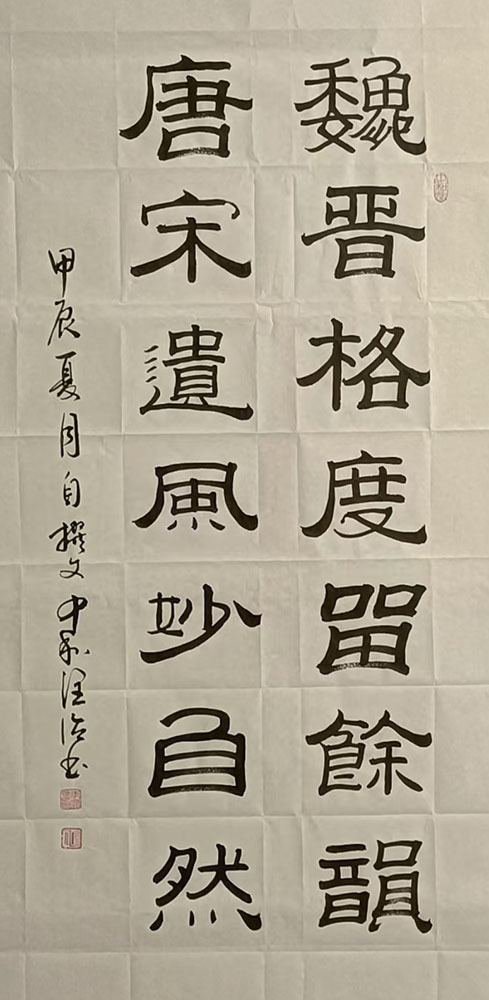 魏晋格度留餘韻
唐宋遺風妙自然
甲辰夏月自撰文中和汪浩书